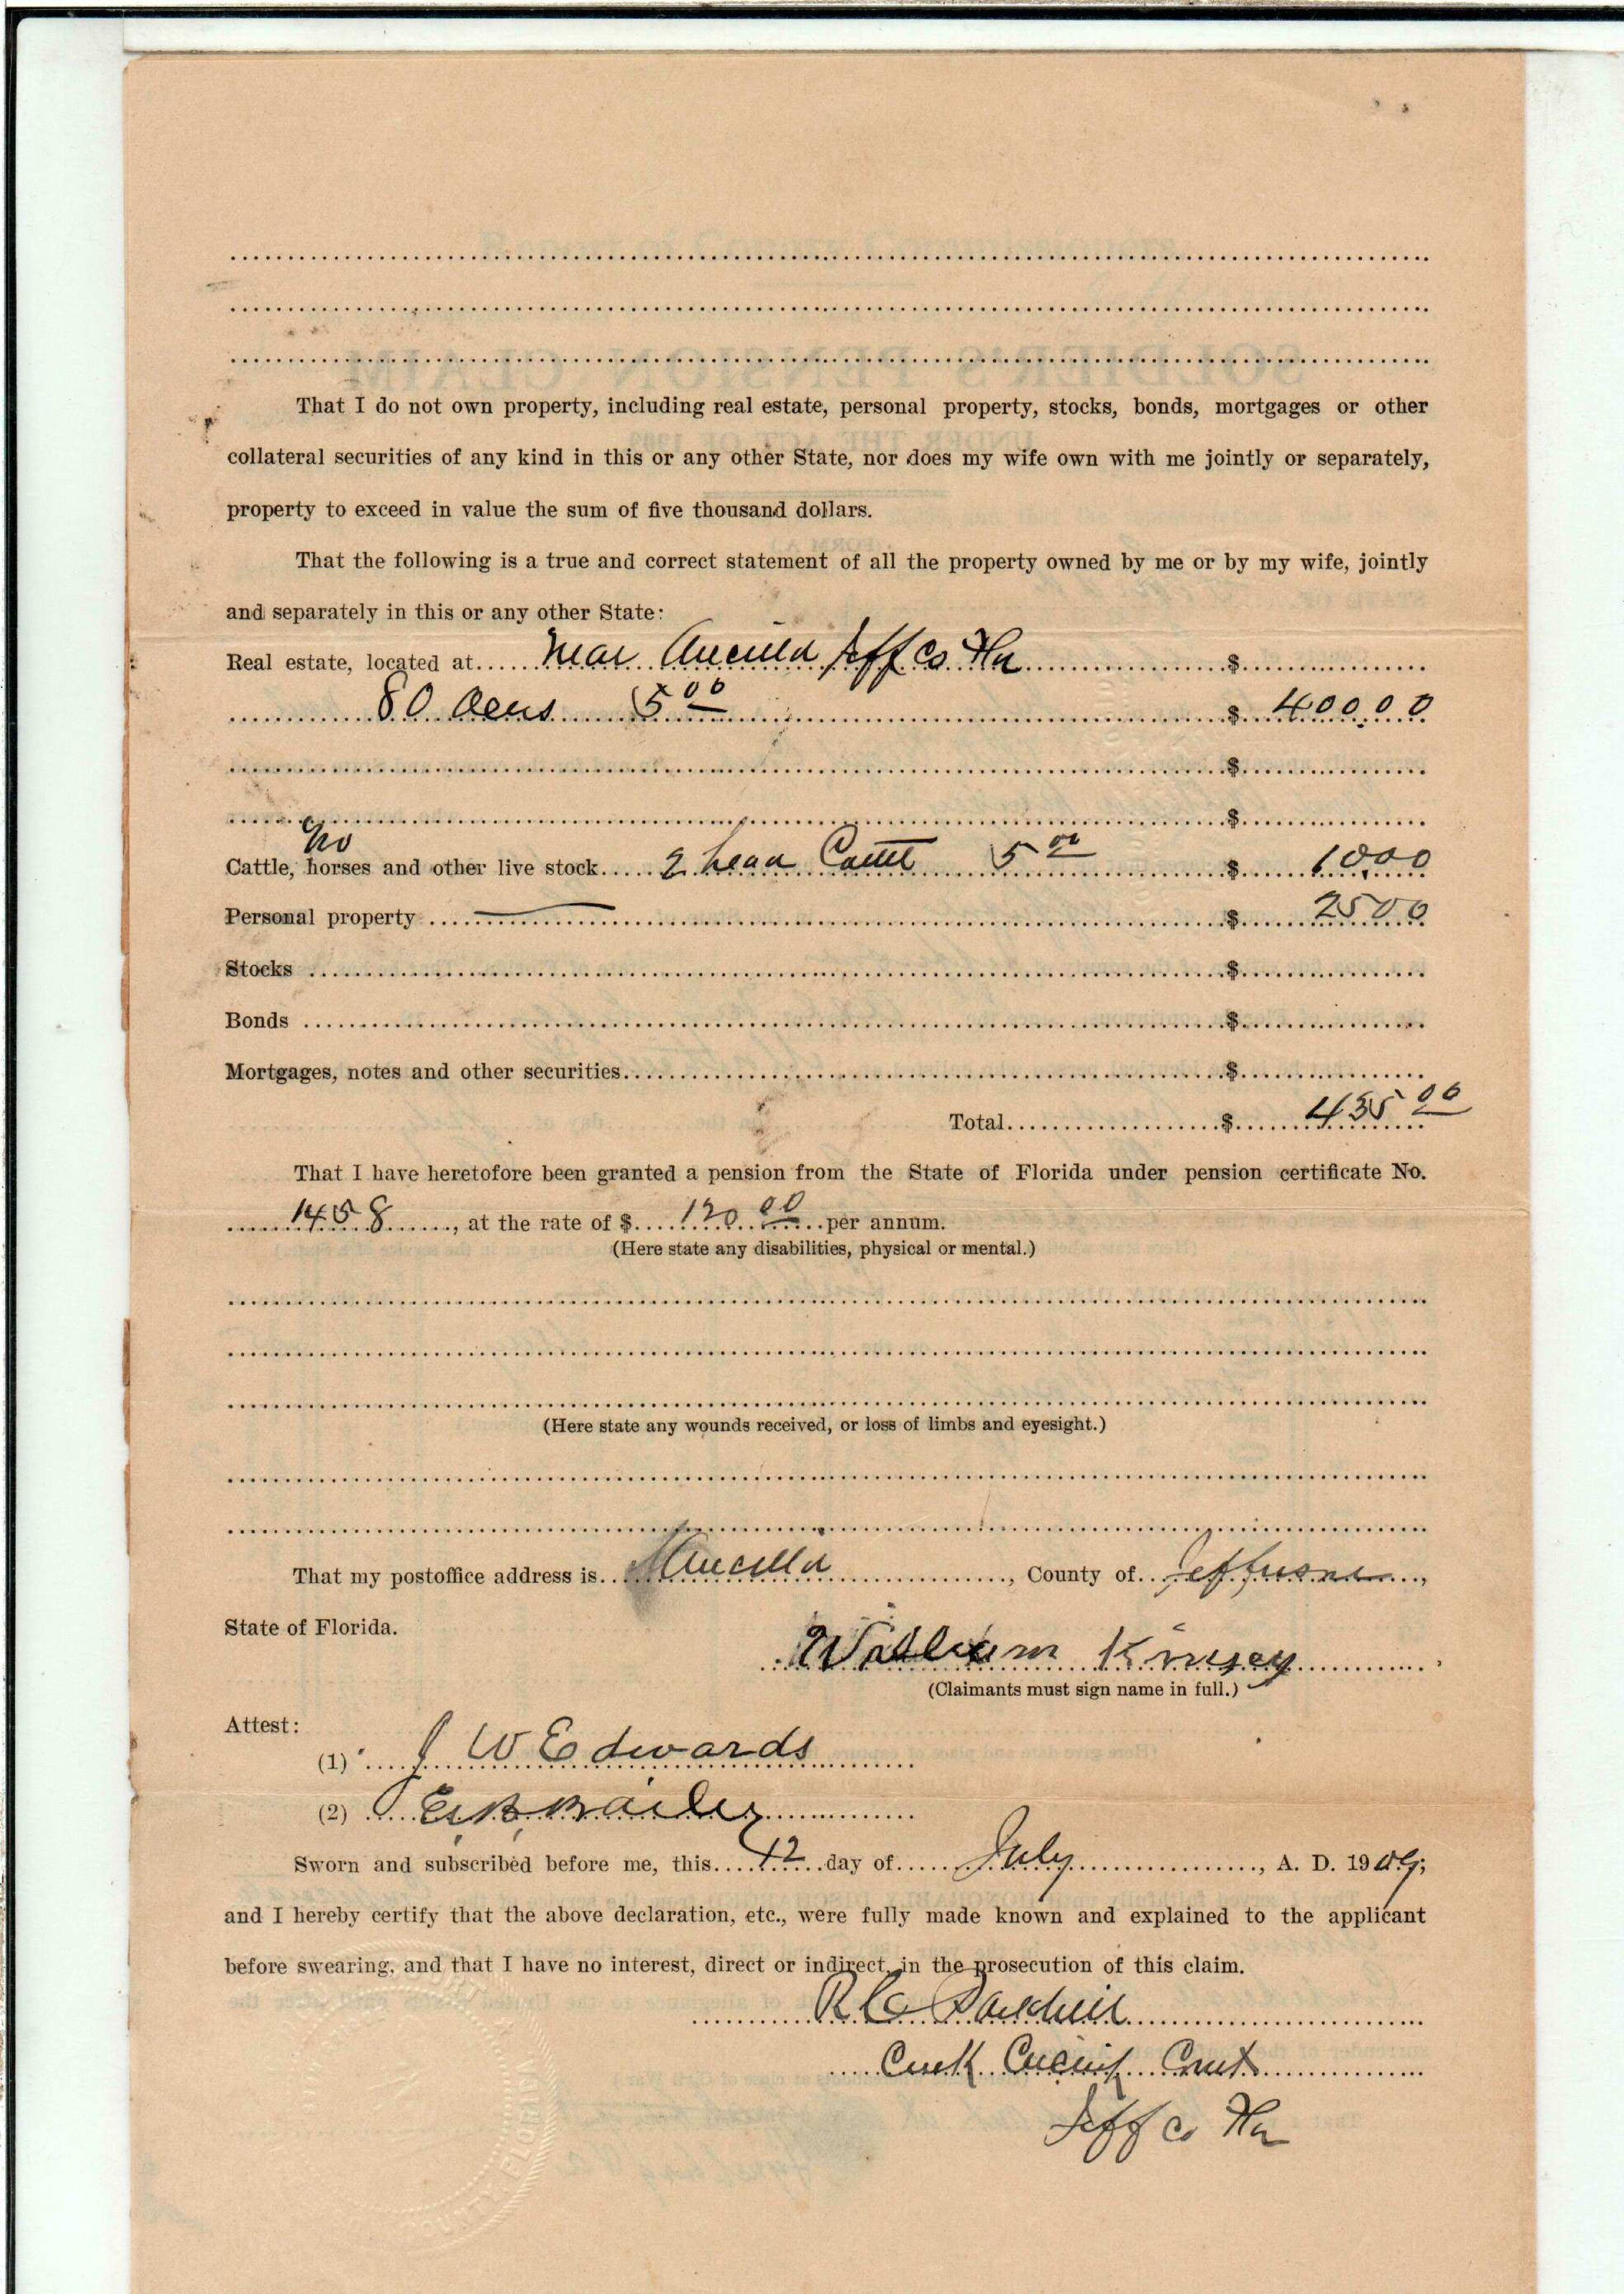 That I do not own property, including real estate, personal property, stocks, bonds, mortgages or other
collateral securities of any kind in this or any other State, nor does my wife own with me jointly or separately,
property to exceed in value the sum of five thousand dollars.
That the following is a true and correct statement of all the property owned by me or by my wife, jointly
and separately in this or any other State:
Real estate, located at Near Aucilla Jeff Co Fla $
80 Acres 5 00 $ 400.00
$
$
no
Cattle, horses and other live stock 2 head Cattle 5 00 $ 10.00
Personal property $ 25 00
Stocks $
Bonds $
Mortgages, notes and other securities $
Total $ 435 00
That I have heretofore been granted a pension from the State of Florida under pension certificate No.
1458, at the rate of $ 120 00 per annum.
(Here state any disabilities, physical or mental.)
(Here state any wounds received, or loss of limbs and eyesight.)
That my postoffice address is Aucilla, County of Jefferson,
State of Florida.
William Kinsey
(Claimants must sign name in full.)
Attest:
(1) J W Edwards
(2) E. B. Bailey
Sworn and subscribed before me, this 12 day of July, A. D. 1909;
and I hereby certify that the above declaration, etc., were fully made known and explained to the applicant
before swearing, and that I have no interest, direct or indirect, in the prosecution of this claim.
R C Parkhill
Clerk Circuit Court
Jeff Co Fla